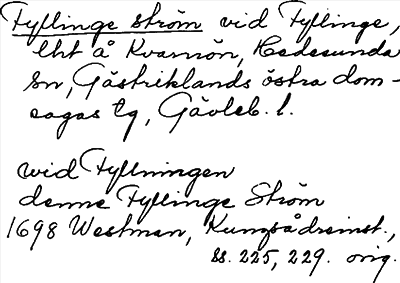 Fyllinge ström vid Fyllinge,
lht å Kvarnön, Hedesunda
sn, Gästriklands östra dom-
sagas tg, Gävleb. l.
wid Fyllningen
denne Fyllinge Ström
1698 Westman, Kungsådreinst.,
ss. 225, 229. orig.